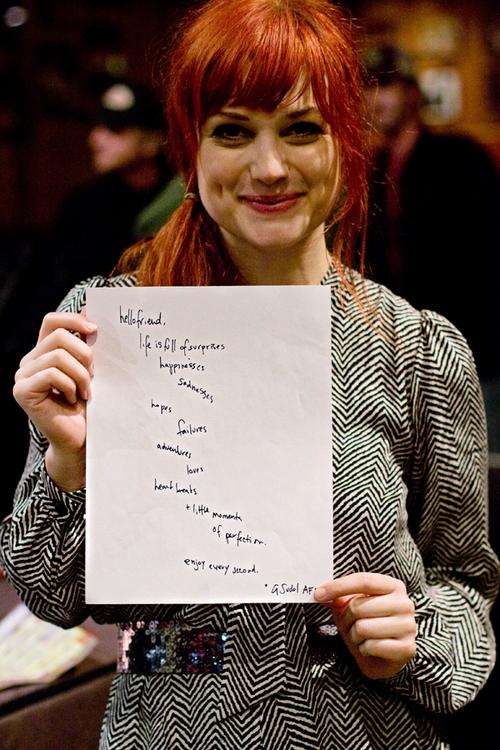 hello friend,
life is full of surprises
happinesses
sadnesses
hopes
failures
adventures
loves
heartbreaks
+ little moments
of perfection.
enjoy every second.
* G Sudol AF